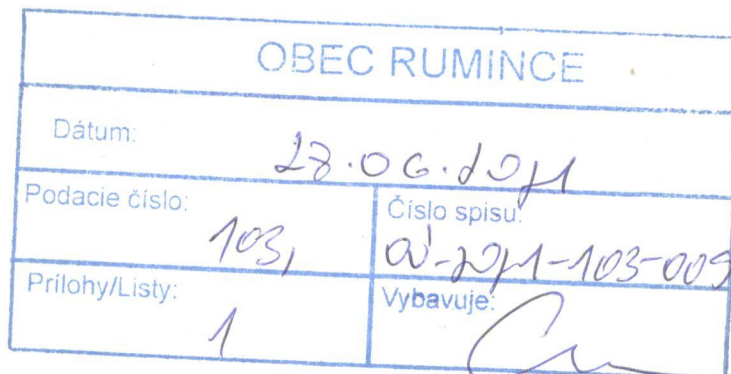 OBEC RUMINCE
Dátum:
28.06.2011
Podacie číslo:
103,
Číslo spisu:
OÚ-2011-103-009
Prílohy/Listy:
1
Vybavuje: